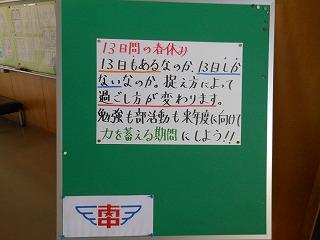 13日間の春休み
13日もあるなのか、13日しか
ないなのか。捉え方によって
過ごし方が変わります。
勉強も部活動も来年度に向けて
力を蓄える期間にしよう!!
南中